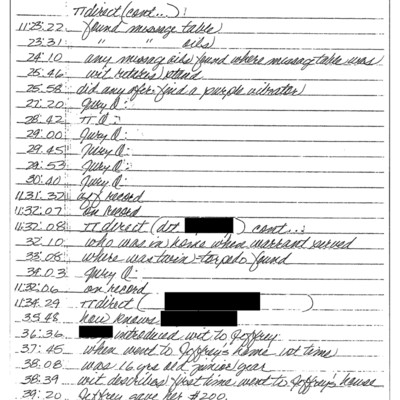 π direct (cont...):
11:23:22 found massage table
23:31 " " oils
24:10 any massage oils found where massage table was
25:46 wit retakes stand
25:58 did any ofcr find a purple vibrator
27:20 Jury Q:
28:42 π Q:
29:00 Jury Q:
29:45 Jury Q:
29:53 Jury Q:
30:40 Jury Q:
11:31:32 off record
11:32:07 on record
11:32:08 π direct (dot ) cont...:
32:10 who was in home when warrant served
33:08 where was twin-torpedo found
34:03 Jury Q:
11:32:06 on record
11:34:29 π direct ( )
35:48 how knows
36:36 introduced wit to Jeffrey
37:45 when went to Jeffrey's home 1st time
38:08 was 16 yrs old junior year
38:39 wit describes first time went to Jeffrey's house
39:20 Jeffrey gave her $200.